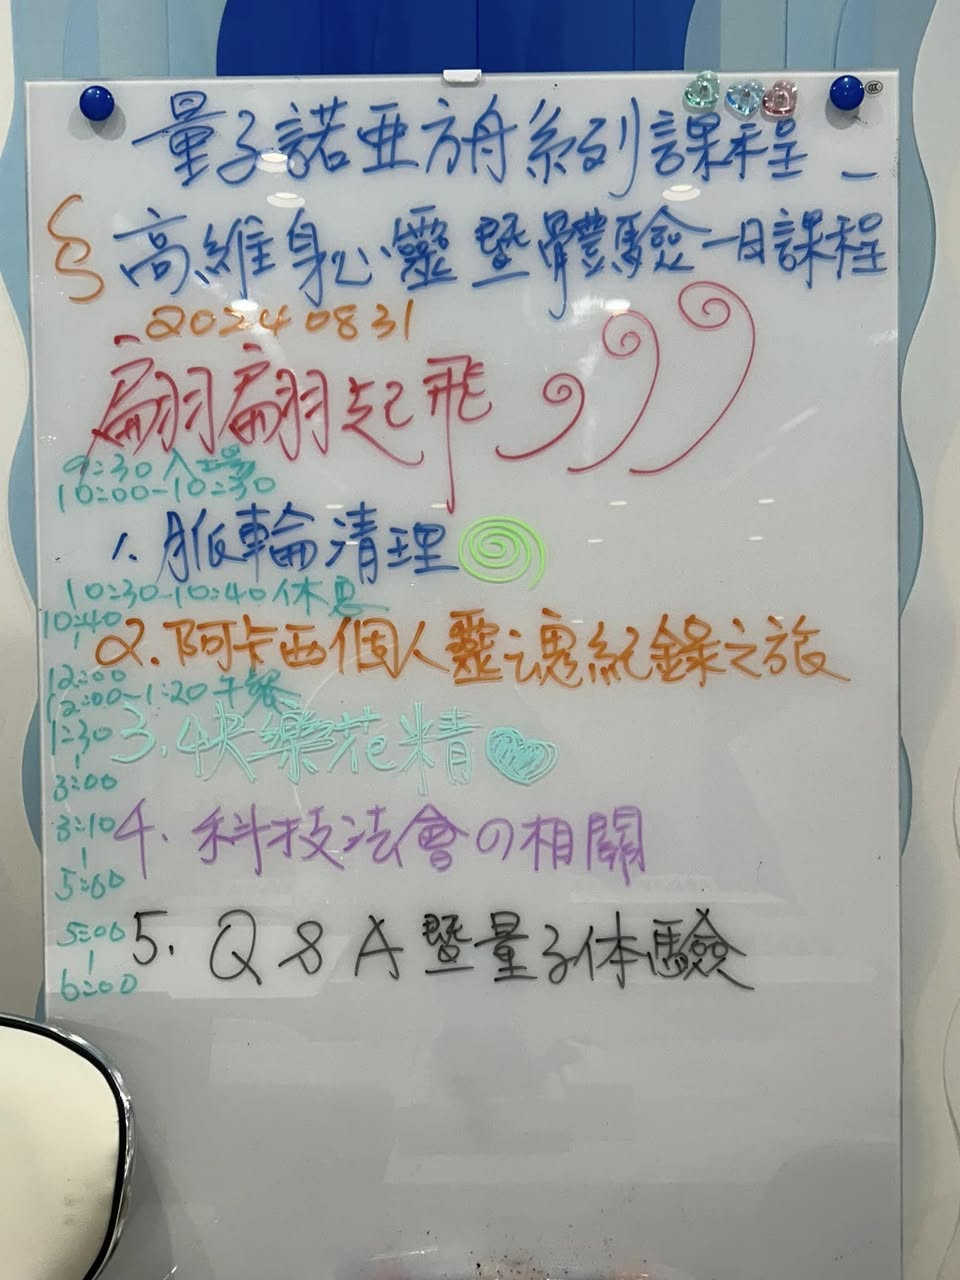 量子諾亚方舟系列課程–
§高維身心靈暨體驗一日課程
20240831
翩翩起飛
9:30入場
10:00-10:30
1.脈輪清理
10:30-10:40休息
10:40
|
12:00
2.阿卡西個人靈魂紀錄之旅
12:00-1:20午餐
1:30
|
3:00
3.快樂花精
3:10
|
5:00
4.科技法會の相關
5:00
|
6:00
5.Q&A暨量子体驗